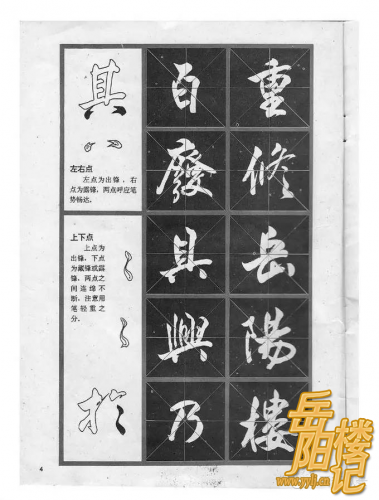 其
左右点
左点为出锋、右
点为露锋,两点呼应笔
势畅达。
上下点
上点为
出锋,下点
为藏锋或露
锋,两点之
间连绵不
断,注意用
笔轻重之
分。
於
重修岳陽樓
百廢具興乃
4
岳阳楼记
www.yylj.cn